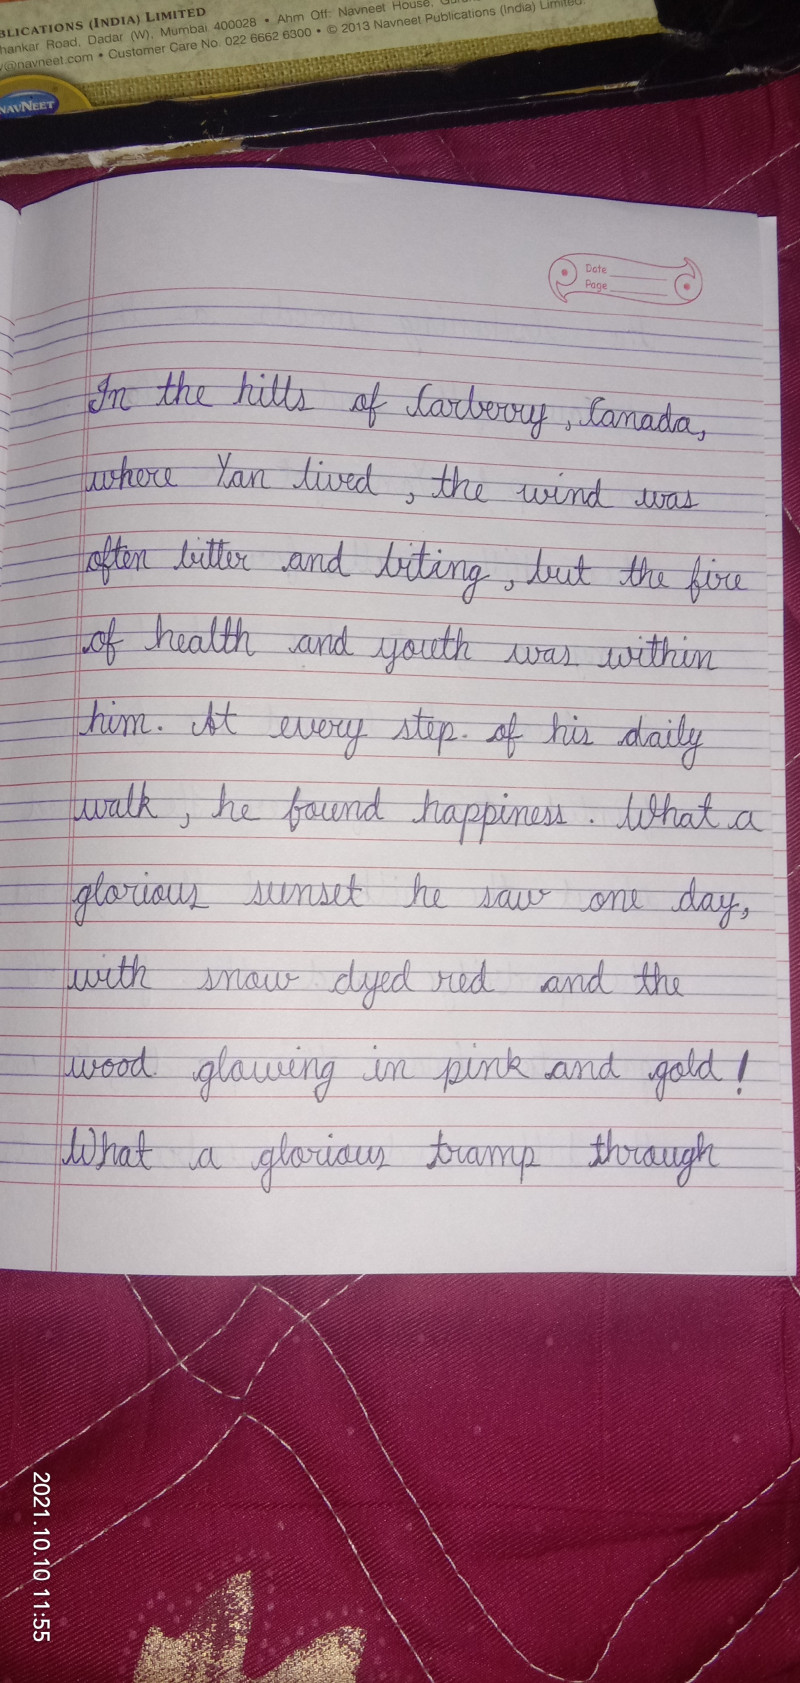 BLICATIONS (INDIA) LIMITED
hankar Road, Dadar (W), Mumbai 400028 • Ahm Off: Navneet House,
@navneet.com • Customer Care No. 022 6662 6300 • © 2013 Navneet Publications (India) Limited.
NAVNEET
Date
Page
In the hills of Carberry, Canada,
where Yan lived, the wind was
often bitter and biting, but the fire
of health and youth was within
him. At every step. of his daily
walk, he found happiness. What a
glorious sunset he saw one day,
with snow dyed red and the
wood glowing in pink and gold!
What a glorious tramp through
2021.10.10 11:55